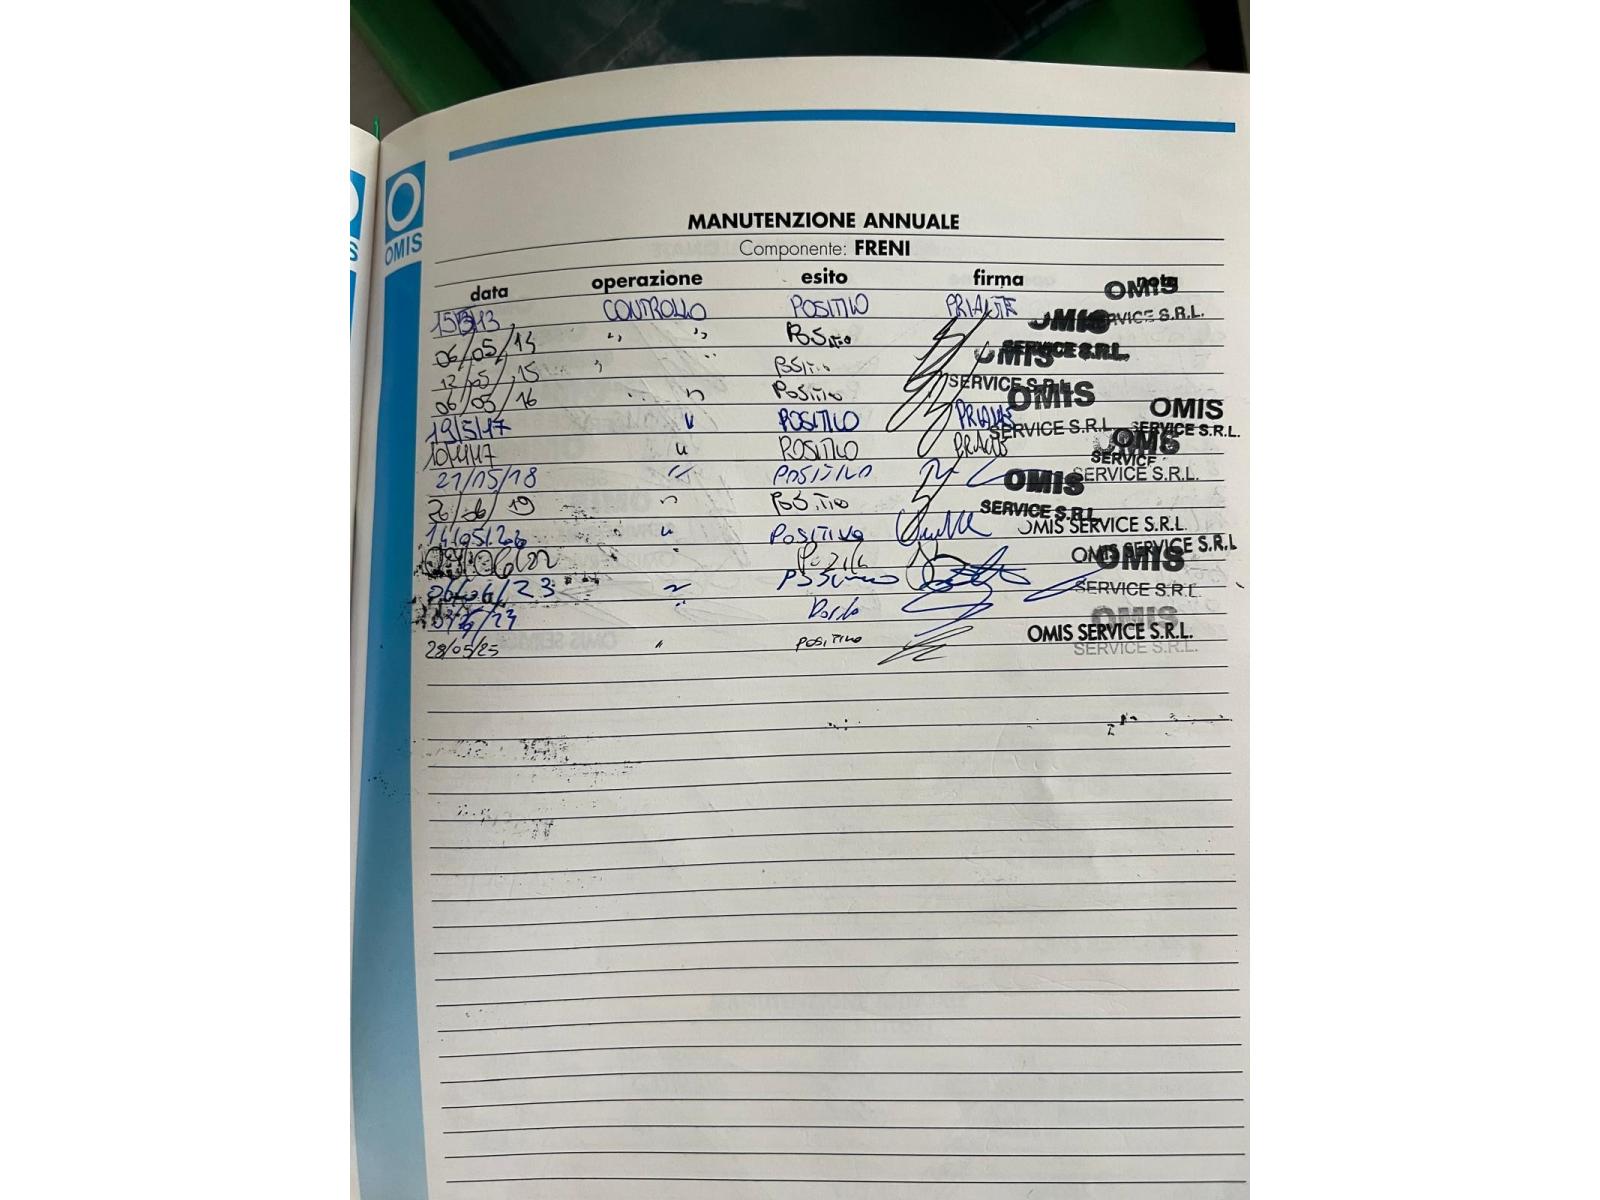 OMIS
MANUTENZIONE ANNUALE
Componente: FRENI
data operazione esito firma note
15/3/13 CONTROLLO POSITIVO PRIANTE OMIS
SERVICE S.R.L.
06/05/14 " " POSITIVO OMIS
SERVICE S.R.L.
12/05/15 " " POSITIVO OMIS
SERVICE S.R.L.
06/05/16 " POSITIVO OMIS
19/5/17 " POSITIVO PRIANTE SERVICE S.R.L. OMIS
SERVICE S.R.L.
10/11/17 " POSITIVO PRIANTE OMIS
SERVICE
21/05/18 " POSITIVO SERVICE S.R.L.
OMIS
26/06/19 " POSITIVO SERVICE S.R.L.
14/05/20 " POSITIVO OMIS SERVICE S.R.L.
09/06/22 OMIS SERVICE S.R.L.
OMIS
06/06/23 " POSITIVO SERVICE S.R.L.
"
OMIS
28/05/25 " POSITIVO OMIS SERVICE S.R.L.
SERVICE S.R.L.